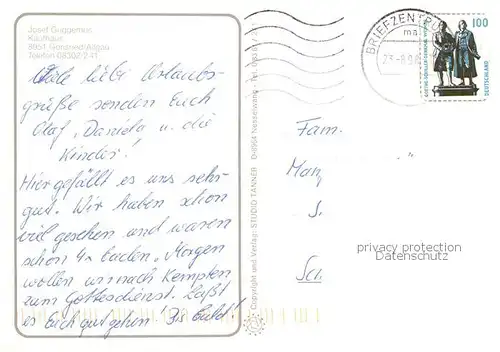 Josef Guggemos
Kaufhaus
Telefon 08302/241
Viele liebe Urlaubs-
grüße senden Euch
Olaf, Daniela u. die
Kinder!
Hier gefällt es uns sehr
gut. Wir haben schon
viel gesehen und waren
schon 4x baden. Morgen
wollen wir nach Kempten
zum Gottesdienst. Laßt
es Euch gut gehen! Bis bald!
Copyright und Verlag: STUDIO TANNER D-8964 Nesselwang
BRIEFZENTRUM
100
DEUTSCHLAND
Fam.
privacy protection
Datenschutz